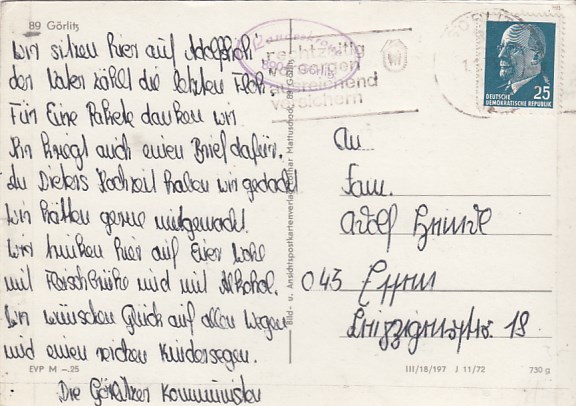 89 Görlitz
Wir sitzen hier auf Adolfshöh
der Vater zählt die letzten Flöh.
Für Eure Pakete danken wir.
Ihr kriegt auch einen Brief dafür.
An Dieters Hochzeit haben wir gedacht
Wir hätten gerne mitgemacht.
Wir trinken hier auf Euer Wohl
mit Fleischbrühe und mit Alkohol.
Wir wünschen Glück auf allen Wegen
und einen reichen Kindersegen.
Die Görlitzer Kommunisten
EVP M –.25
Bild- u. Ansichtspostkartenverlag Lothar Mattuscheck, 89 Görlitz
rechtzeitig
vorsorgen
ausreichend
versichern
DEUTSCHE
DEMOKRATISCHE REPUBLIK
25
An
Fam.
Adolf
043 Essen
Leipzigerstr. 18
III/18/197 J 11/72
730 g